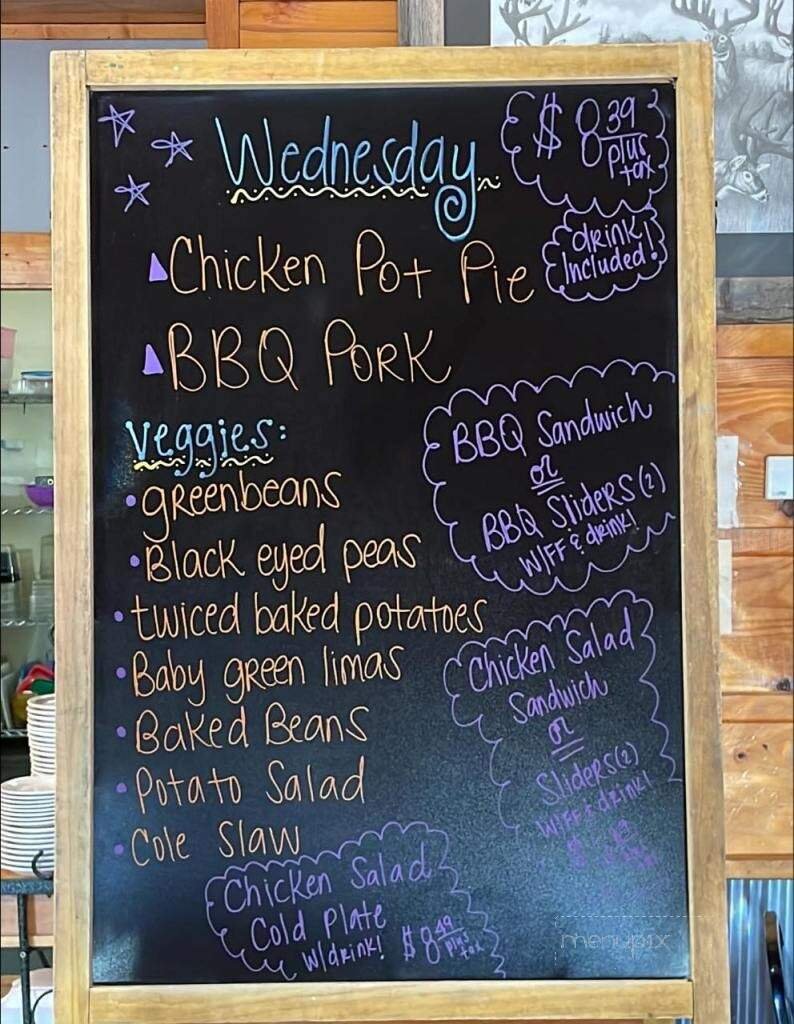 Wednesday
$8 39
plus
tax
drink
Included!
Chicken Pot Pie
BBQ Pork
Veggies:
greenbeans
Black eyed peas
twiced baked potatoes
Baby green limas
Baked Beans
Potato Salad
Cole Slaw
BBQ Sandwich
or
BBQ Sliders (2)
W/FF & drink!
Chicken Salad
Sandwich
or
Sliders (2)
W/FF & drink!
$
Chicken Salad
Cold Plate
W/drink! $8 49
plus
tax
menupix